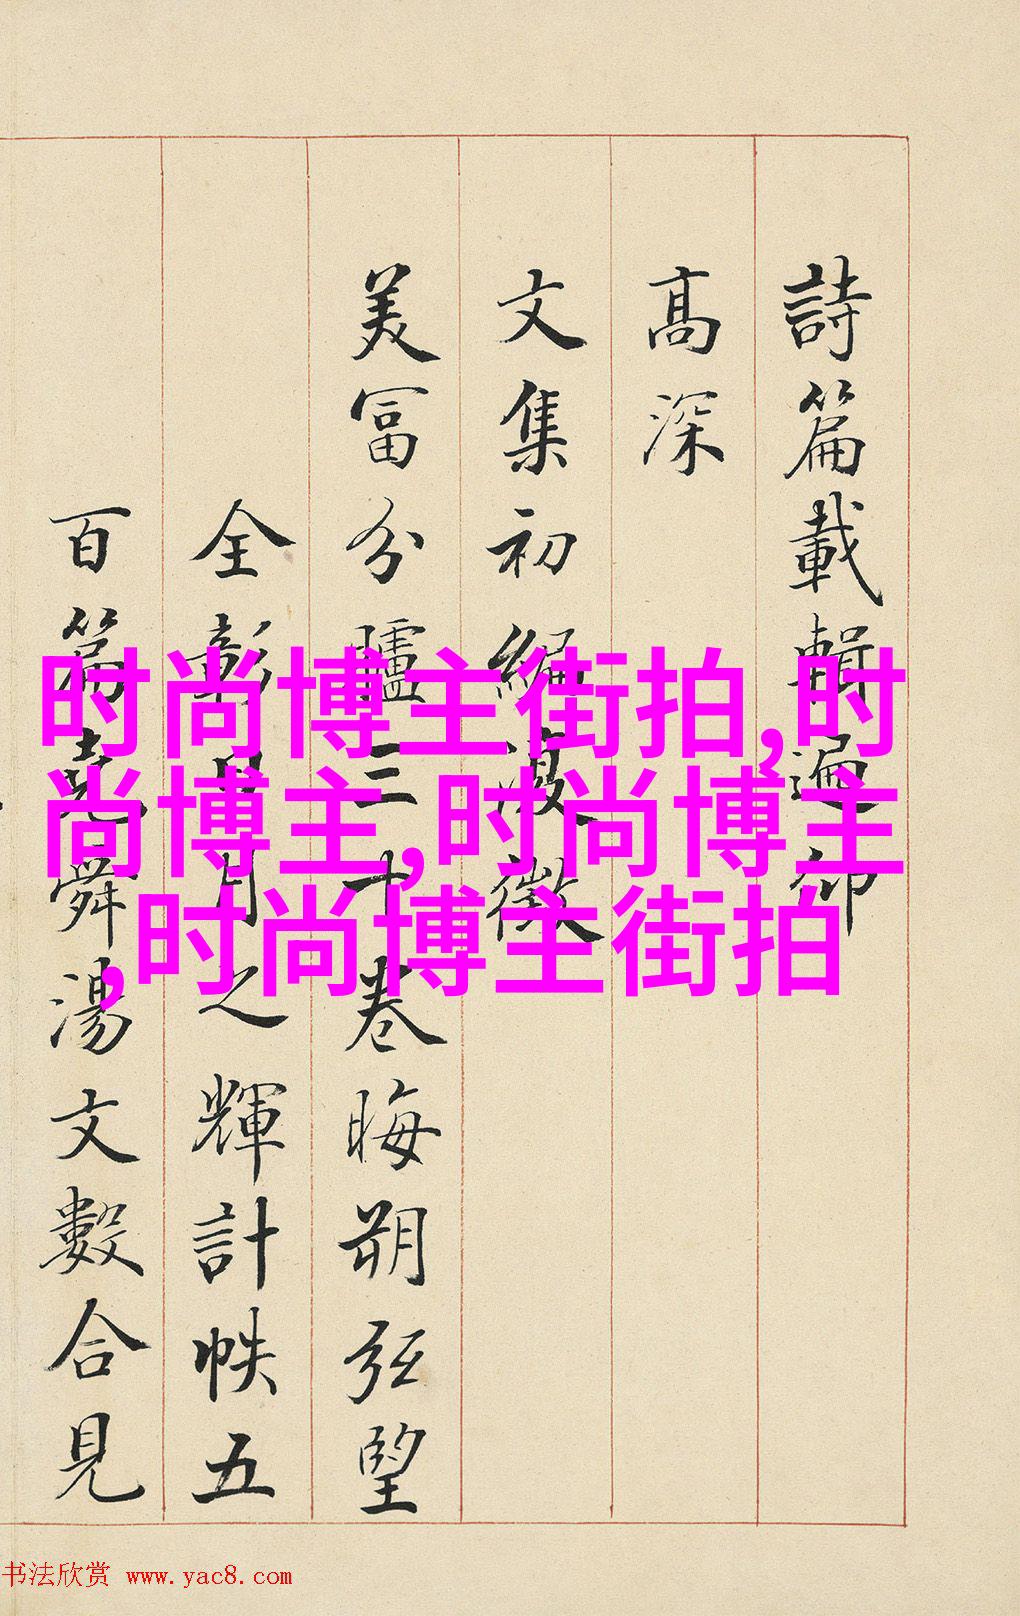 詩篇載輯遍仰
高深
文集初編復徵
美富分臚三十卷晦朔弦望
全彰日月之輝計帙五
百篇堯舜湯文數合見
时尚博主街拍,时
尚博主,时尚博主
,时尚博主街拍
书法欣赏 www.yac8.com